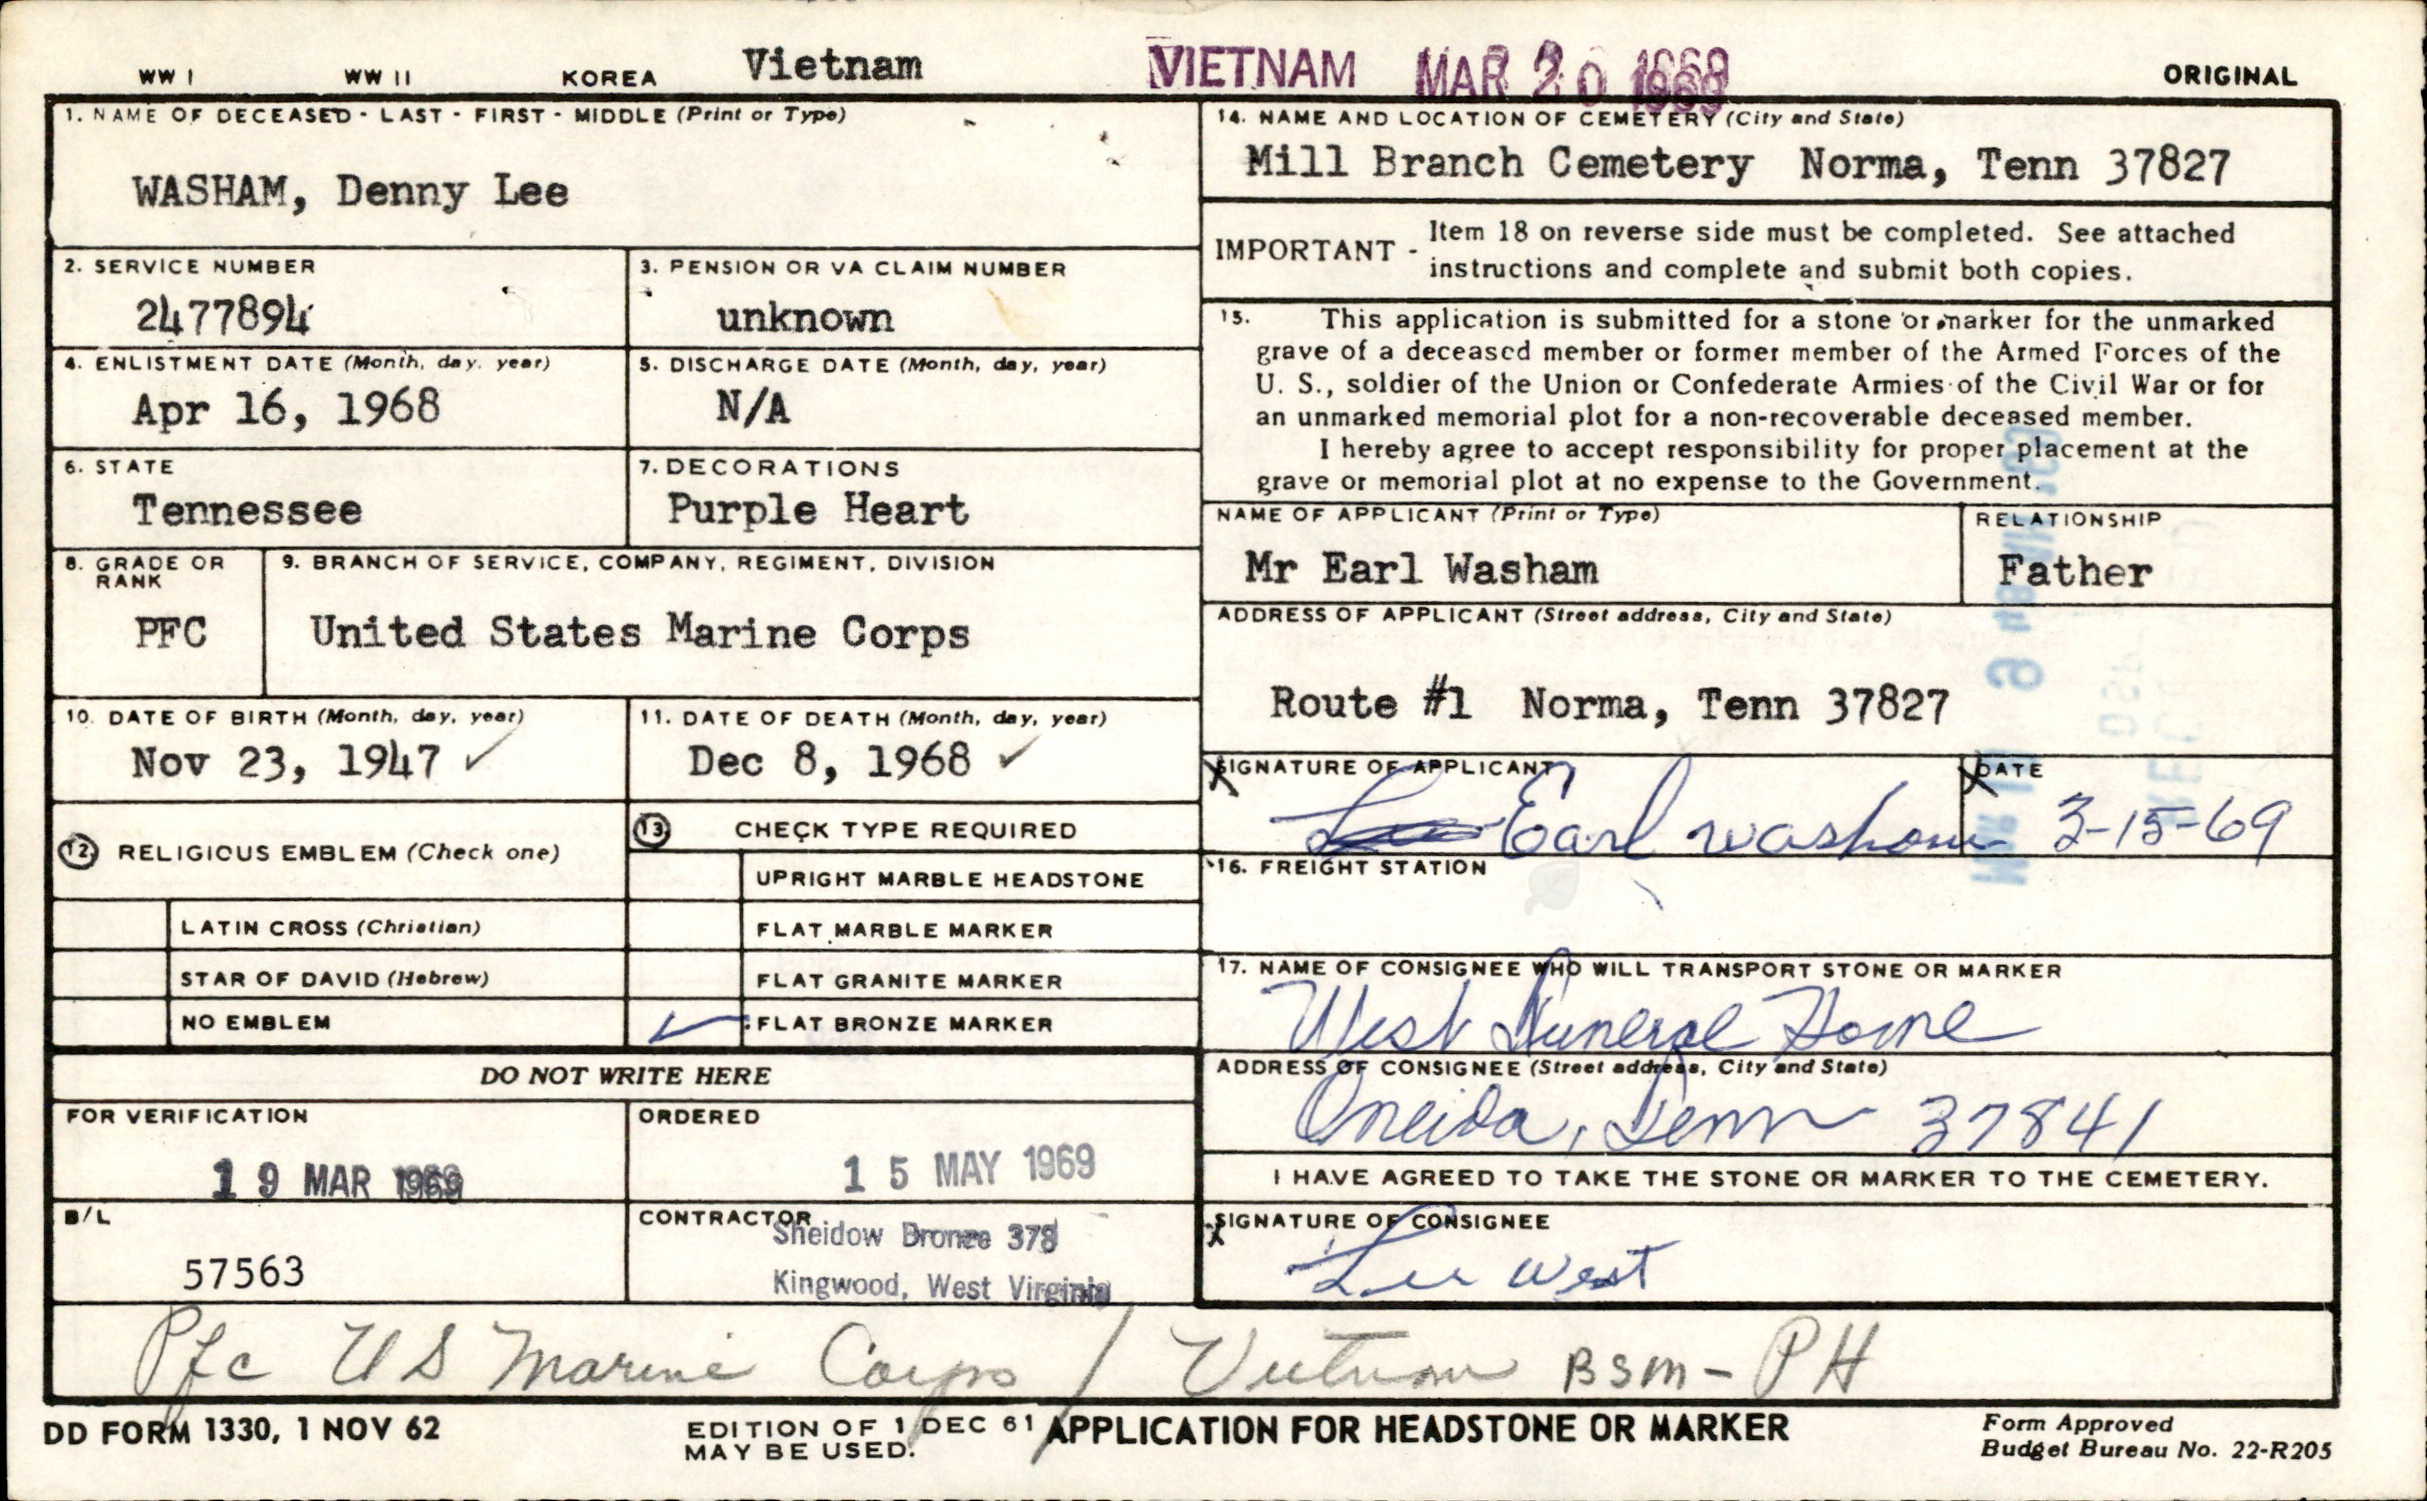 WW I WW II KOREA Vietnam VIETNAM MAR 20 1969 ORIGINAL
1. NAME OF DECEASED - LAST - FIRST - MIDDLE (Print or Type)
WASHAM, Denny Lee
2. SERVICE NUMBER
2477894
3. PENSION OR VA CLAIM NUMBER
unknown
4. ENLISTMENT DATE (Month, day, year)
Apr 16, 1968
5. DISCHARGE DATE (Month, day, year)
N/A
6. STATE
Tennessee
7. DECORATIONS
Purple Heart
8. GRADE OR
RANK
PFC
9. BRANCH OF SERVICE, COMPANY, REGIMENT, DIVISION
United States Marine Corps
10. DATE OF BIRTH (Month, day, year)
Nov 23, 1947 ✓
11. DATE OF DEATH (Month, day, year)
Dec 8, 1968 ✓
12 RELIGIOUS EMBLEM (Check one)
LATIN CROSS (Christian)
STAR OF DAVID (Hebrew)
NO EMBLEM
13 CHECK TYPE REQUIRED
UPRIGHT MARBLE HEADSTONE
FLAT MARBLE MARKER
FLAT GRANITE MARKER
✓ FLAT BRONZE MARKER
DO NOT WRITE HERE
FOR VERIFICATION
19 MAR 1969
ORDERED
15 MAY 1969
B/L
57563
CONTRACTOR
Sheidow Bronze 378
Kingwood, West Virginia
14. NAME AND LOCATION OF CEMETERY (City and State)
Mill Branch Cemetery Norma, Tenn 37827
IMPORTANT - Item 18 on reverse side must be completed. See attached
instructions and complete and submit both copies.
15. This application is submitted for a stone or marker for the unmarked
grave of a deceased member or former member of the Armed Forces of the
U. S., soldier of the Union or Confederate Armies of the Civil War or for
an unmarked memorial plot for a non-recoverable deceased member.
I hereby agree to accept responsibility for proper placement at the
grave or memorial plot at no expense to the Government.
NAME OF APPLICANT (Print or Type)
Mr Earl Washam
RELATIONSHIP
Father
ADDRESS OF APPLICANT (Street address, City and State)
Route #1 Norma, Tenn 37827
X SIGNATURE OF APPLICANT
Earl Washam
X DATE
3-15-69
16. FREIGHT STATION
17. NAME OF CONSIGNEE WHO WILL TRANSPORT STONE OR MARKER
West Funeral Home
ADDRESS OF CONSIGNEE (Street address, City and State)
Oneida, Tenn 37841
I HAVE AGREED TO TAKE THE STONE OR MARKER TO THE CEMETERY.
X SIGNATURE OF CONSIGNEE
Lee West
Pfc US Marine Corps / Vietnam BSM - PH
DD FORM 1330, 1 NOV 62
EDITION OF 1 DEC 61
MAY BE USED.
APPLICATION FOR HEADSTONE OR MARKER
Form Approved
Budget Bureau No. 22-R205